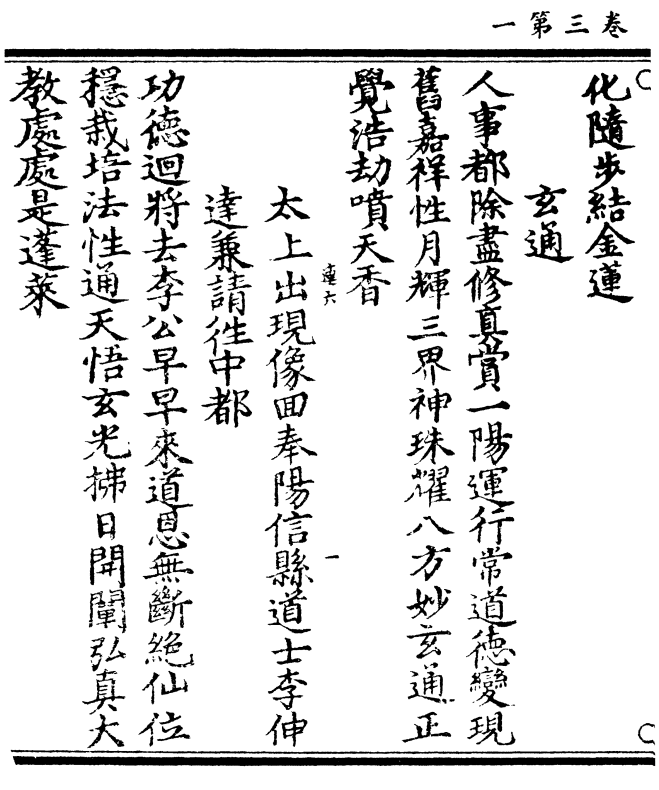 卷三第一
化隨步結金蓮
玄通
人事都除盡修真賞一陽運行常道德變現
舊嘉祥性月輝三界神珠耀八方妙玄通正
覺浩劫噴天香
連六
一
太上出現像回奉陽信縣道士李伸
達兼請往中都
功德迴將去李公早早來道恩無斷絕仙位
穩栽培法性通天悟玄光拂日開闡弘真大
教處處是蓬萊